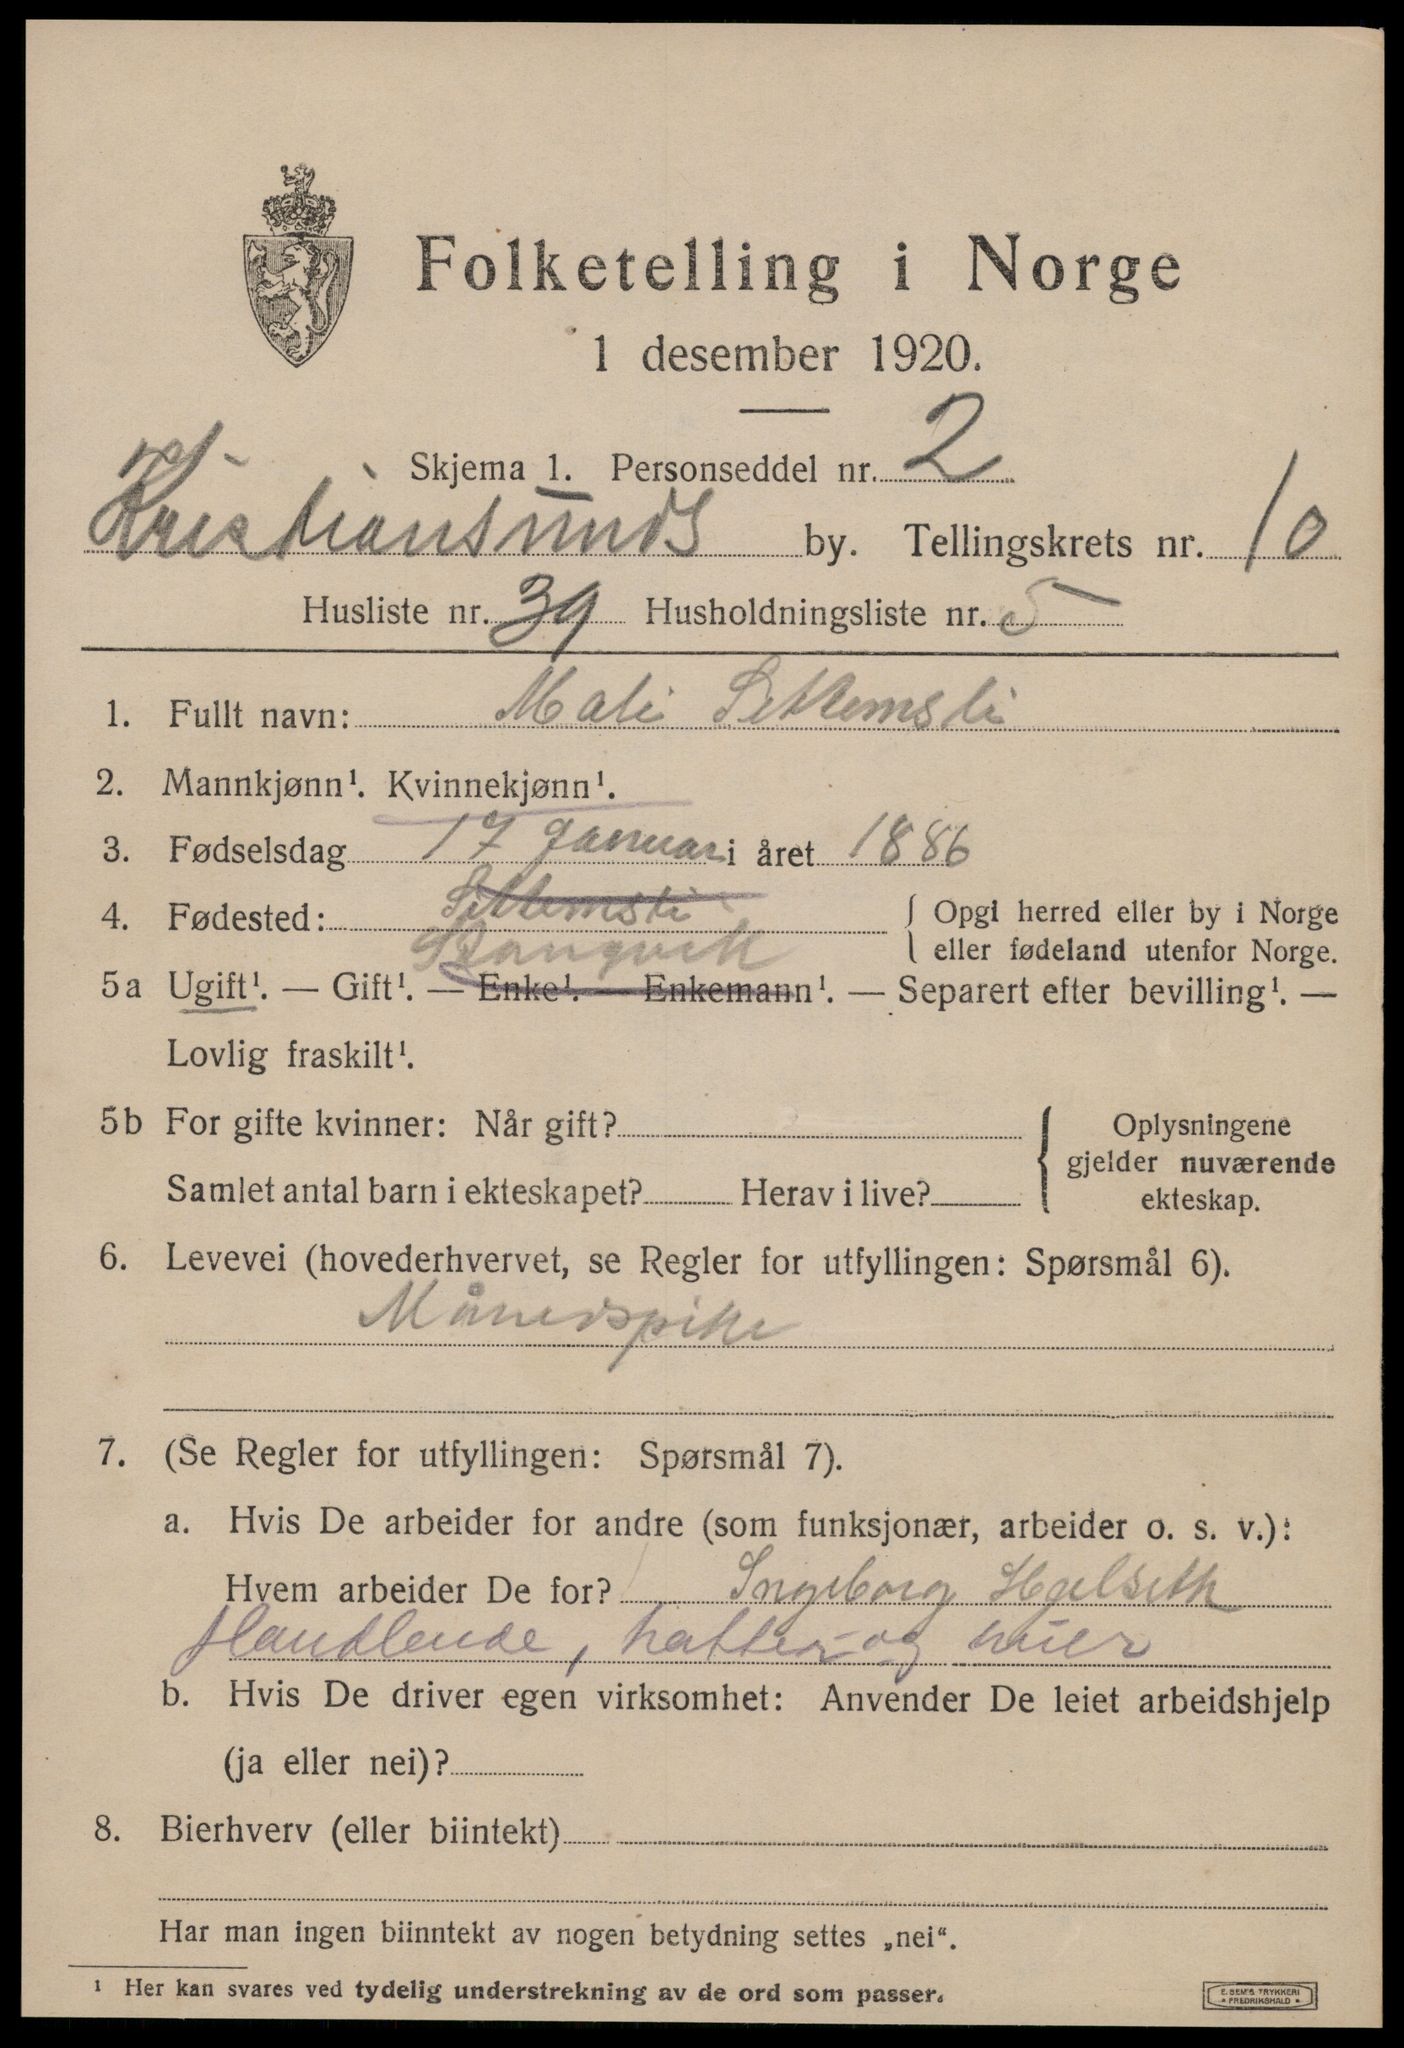 Folketelling i Norge
1 desember 1920.
Skjema 1. Personseddel nr. 2
Kristiansunds by. Tellingskrets nr. 10
Husliste nr. 39 Husholdningsliste nr. 5
1. Fullt navn: Mali Settemsli
2. Mannkjønn¹. Kvinnekjønn¹.
3. Fødselsdag 17 Januar i året 1886
Settemsli
4. Fødested: Stangvik { Opgi herred eller by i Norge
eller fødeland utenfor Norge.
5a Ugift¹. — Gift¹. — Enke¹. — Enkemann¹. — Separert efter bevilling¹. —
Lovlig fraskilt¹.
5b For gifte kvinner: Når gift? { Oplysningene
gjelder nuværende
Samlet antal barn i ekteskapet? Herav i live? ekteskap.
6. Levevei (hovederhvervet, se Regler for utfyllingen: Spørsmål 6).
Månedspike
7. (Se Regler for utfyllingen: Spørsmål 7).
a. Hvis De arbeider for andre (som funksjonær, arbeider o. s. v.):
Hvem arbeider De for? Ingeborg Halseth
Handlende, hatter og huer
b. Hvis De driver egen virksomhet: Anvender De leiet arbeidshjelp
(ja eller nei)?
8. Bierhverv (eller biintekt)
Har man ingen biinntekt av nogen betydning settes „nei“.
¹ Her kan svares ved tydelig understrekning av de ord som passer.
E. SEM'S TRYKKERI
• FREDRIKSHALD •